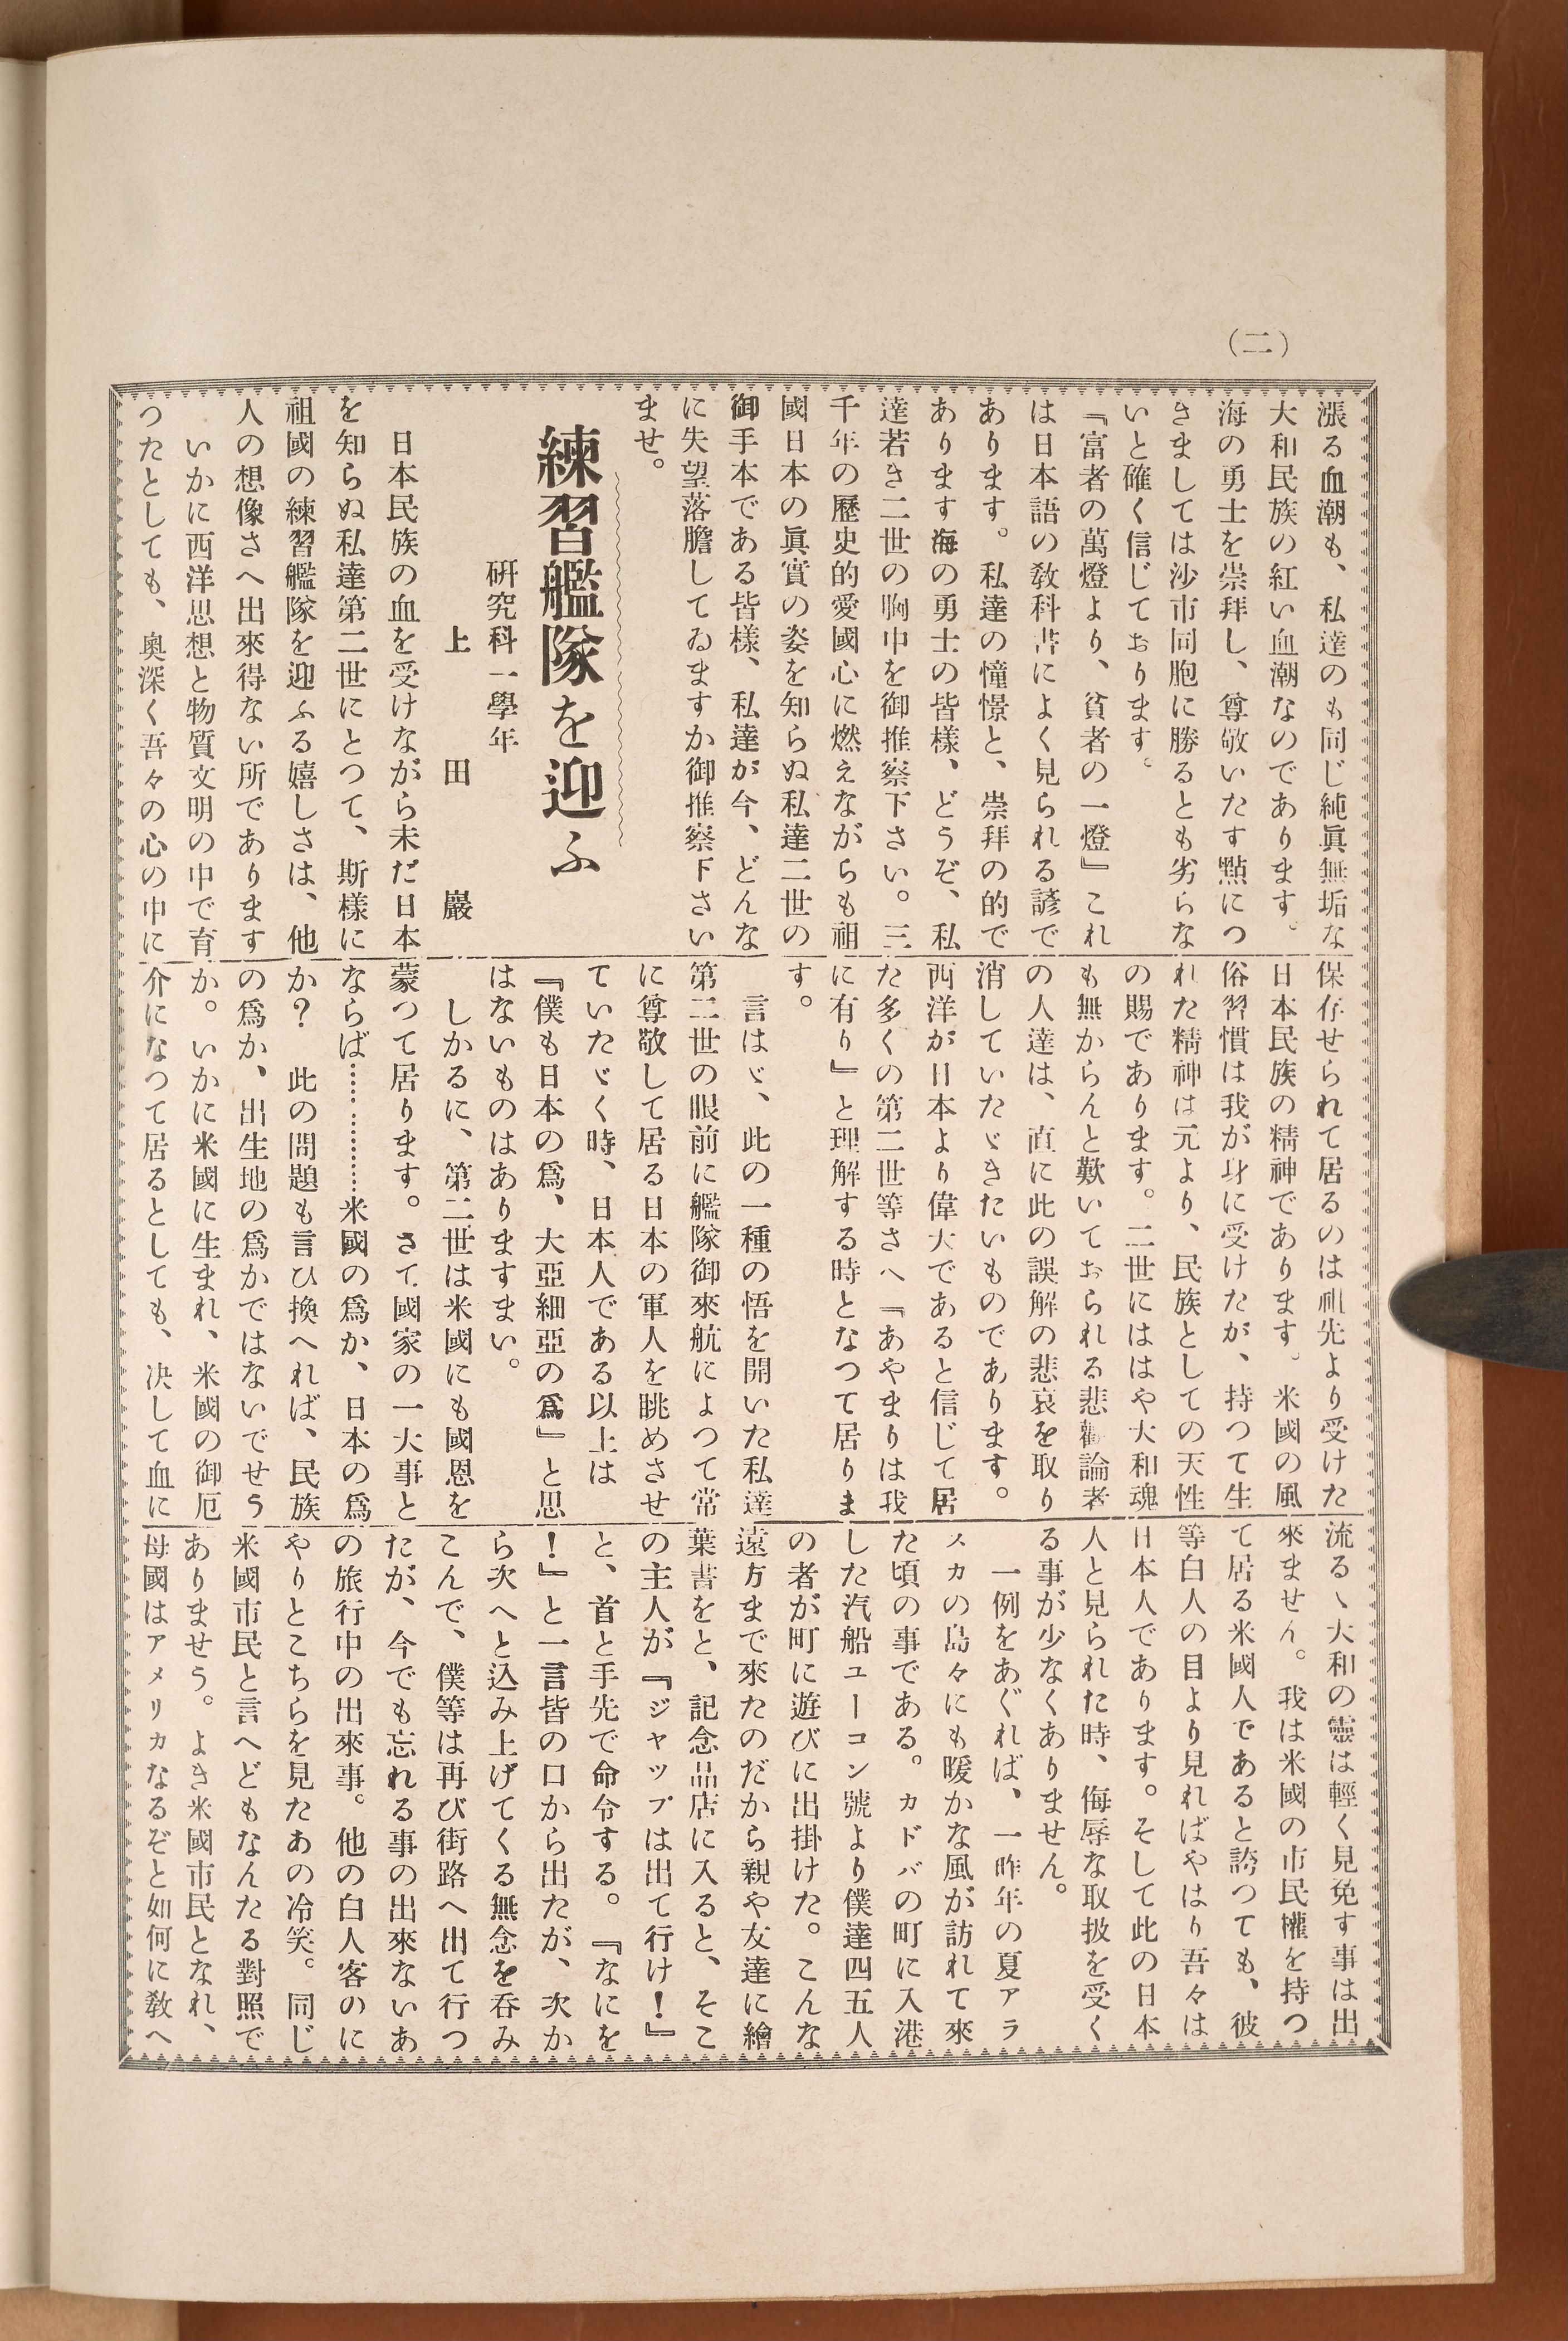 (二)
漲る血潮も、私達のも同じ純眞無垢な
大和民族の紅い血潮なのであります。
海の勇士を崇拜し、尊敬いたす點につ
きましては沙市同胞に勝るとも劣らな
いと確く信じております。
『富者の萬燈より、貧者の一燈』これ
は日本語の敎科書によく見られる諺で
あります。私達の憧憬と、崇拜の的で
あります海の勇士の皆樣、どうぞ、私
達若き二世の胸中を御推察下さい。三
千年の歷史的愛國心に燃えながらも祖
國日本の眞實の姿を知らぬ私達二世の
御手本である皆樣、私達が今、どんな
に失望落膽してゐますか御推察下さい
ませ。
練習艦隊を迎ふ
硏究科一學年
上田巖
日本民族の血を受けながら未だ日本
を知らぬ私達第二世にとつて、斯樣に
祖國の練習艦隊を迎ふる嬉しさは、他
人の想像さへ出來得ない所であります
いかに西洋思想と物質文明の中で育
つたとしても、奧深く吾々の心の中に
保存せられて居るのは祖先より受けた
日本民族の精神であります。米國の風
俗習慣は我が身に受けたが、持つて生
れた精神は元より、民族としての天性
の賜であります。二世にははや大和魂
も無からんと歎いておられる悲觀論者
の人達は、直に此の誤解の悲哀を取り
消していたゞきたいものであります。
西洋が日本より偉大であると信じて居
た多くの第二世等さへ『あやまりは我
に有り』と理解する時となつて居りま
す。
言はゞ、此の一種の悟を開いた私達
第二世の眼前に艦隊御來航によつて常
に尊敬して居る日本の軍人を眺めさせ
ていたゞく時、日本人である以上は
『僕も日本の爲、大亞細亞の爲』と思
はないものはありますまい。
しかるに、第二世は米國にも國恩を
蒙つて居ります。さて國家の一大事と
ならば…………米國の爲か、日本の爲
か?　此の問題も言ひ換へれば、民族
の爲か、出生地の爲かではないでせう
か。いかに米國に生まれ、米國の御厄
介になつて居るとしても、决して血に
流るゝ大和の靈は輕く見免す事は出
來ません。我は米國の市民權を持つ
て居る米國人であると誇つても、彼
等白人の目より見ればやはり吾々は
日本人であります。そして此の日本
人と見られた時、侮辱な取扱を受く
る事が少なくありません。
一例をあぐれば、一昨年の夏アラ
スカの島々にも暖かな風が訪れて來
た頃の事である。カドバの町に入港
した汽船ユーコン號より僕達四五人
の者が町に遊びに出掛けた。こんな
遠方まで來たのだから親や友達に繪
葉書をと、記念品店に入ると、そこ
の主人が『ジャップは出て行け!』
と、首と手先で命令する。『なにを
!』と一言皆の口から出たが、次か
ら次へと込み上げてくる無念を呑み
こんで、僕等は再び街路へ出て行つ
たが、今でも忘れる事の出來ないあ
の旅行中の出來事。他の白人客のに
やりとこちらを見たあの冷笑。同じ
米國市民と言へどもなんたる對照で
ありませう。よき米國市民となれ、
母國はアメリカなるぞと如何に敎へ